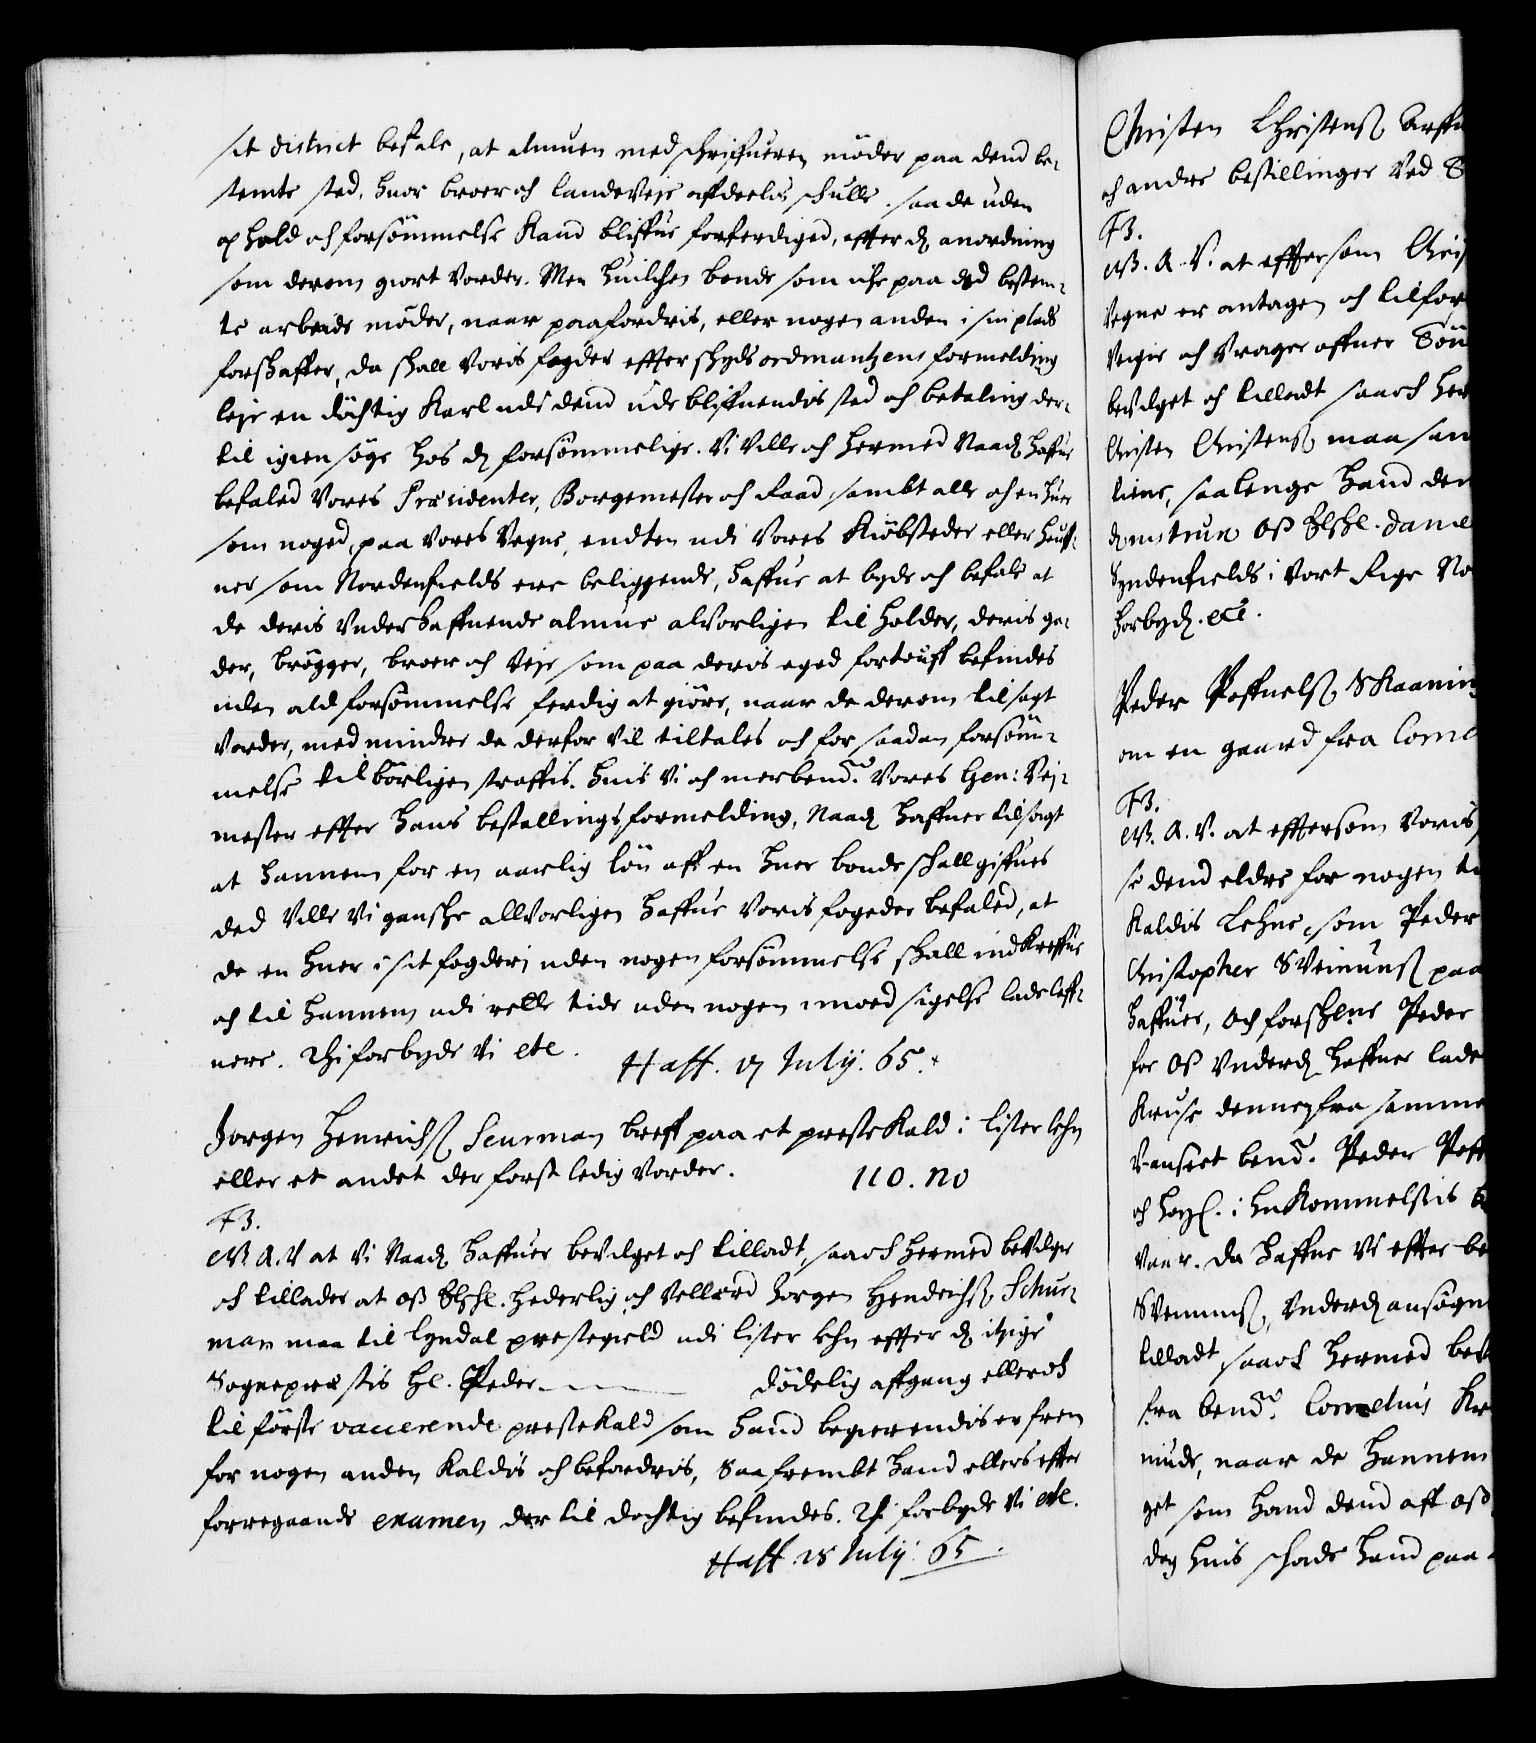 sit district befale, at almuen med schriffueren möder paa dend be-
stemte sted, huor broer och landeveje affdeelis schulle. saa de uden
ophold och forsömmelse Kand bliffue forferdiged, effter d anordning
som derom giort vorder. Men huilchen bonde som iche paa ded bestem-
te arbeide möder, naar paafordris, eller nogen anden i sin plads
forskaffer, da skall voris fogder effter skyds ordinantzens formelding
leje en düchtig Karl udi dend udebliffuendis sted och betaling der-
til igien söge hos d forsömmelige. Vi ville och hermed Naad haffue
befaled Vores Præsidenter, Borgemester och Raad, sambt alle och en huer
som noged paa vores vegne, endten udi Vores Kiöbsteder eller heuff-
ner som Nordenfields ere beliggende, haffue at byde och befale at
de deris vnderhaffuende almue alvorligen til holder, deris ga-
der, brögger, broer och veje som paa deris eged fortouff befindes
uden ald forsömmelse ferdig at giöre, naar de derom tilsagt
vorder, med mindre de derfor vil tiltales och for saadan forsöm-
melse tilbörligen straffis. huis Vi och merbend. Vores Gen: Vej-
mester effter hans bestallings formelding, Naad haffuer tilsagt
at hannem for en aarlig lön aff en huer bonde schall giffues
ded ville vi gansche allvorligen haffue voris fogeder befaled, at
de en huer i sit fogderj uden nogen forsömmelse skall indkreffue
och til hannem udi rette tide uden nogen imoed sigelse lade leff-
uere. Thi forbyde Vi etc. Haff. 17 July. 65.
Jorgen Henrichs Scurman breff paa et prestekald i Lister lehn
eller et andet der först ledig vorder. 110. no
F3.
G. A. V at Vi Naad haffuer bevilget och tilladt, saa och hermed bevilger
och tillader at oß Elskl. hederlig och vellærd Jorgen Hendrichs Schur-
man maa til Lyndal prestegield udi Lister lehn effter d itzige
Sognepræstis Hl. Peder dödelig affgang eller och
til förste vaccerende prestekald som hand begierendis er frem
for nogen anden Kaldis och befordris, Saafrembt hand ellers effter
forregaande examen der til döchtig befindes. Thi forbyde Vi etc.
Haff 18 July. 65.
Christen Christens
och andre bestillinger ved
F3.
G. A. V. at effter som
vegne er antagen och tilfor
och Vrager offuer
bevilget och tilladt saa och
Christen Christens maa
tiene, saalenge hand
oß Elskl.
Syndenfields i vort Rige
Forbyd. etc.
Peder Poffuels Skaaning
om en gaard fra
F3.
G. A. V. at effter som Voris
dend eldre for nogen
Kaldis Lehne, som Peder
Christopher paa
haffuer, Och forskene Peder
for oß vnderd haffuer lade
Kruse denne fra samme
bend. Peder
och i
vaar. da haffue Vi effter
vnderd ansögn
tilladt saa och hermed
fra bend. Cornelius
minde, naar de hannem
get som hand dend aff oß
dog huis schade hand paa